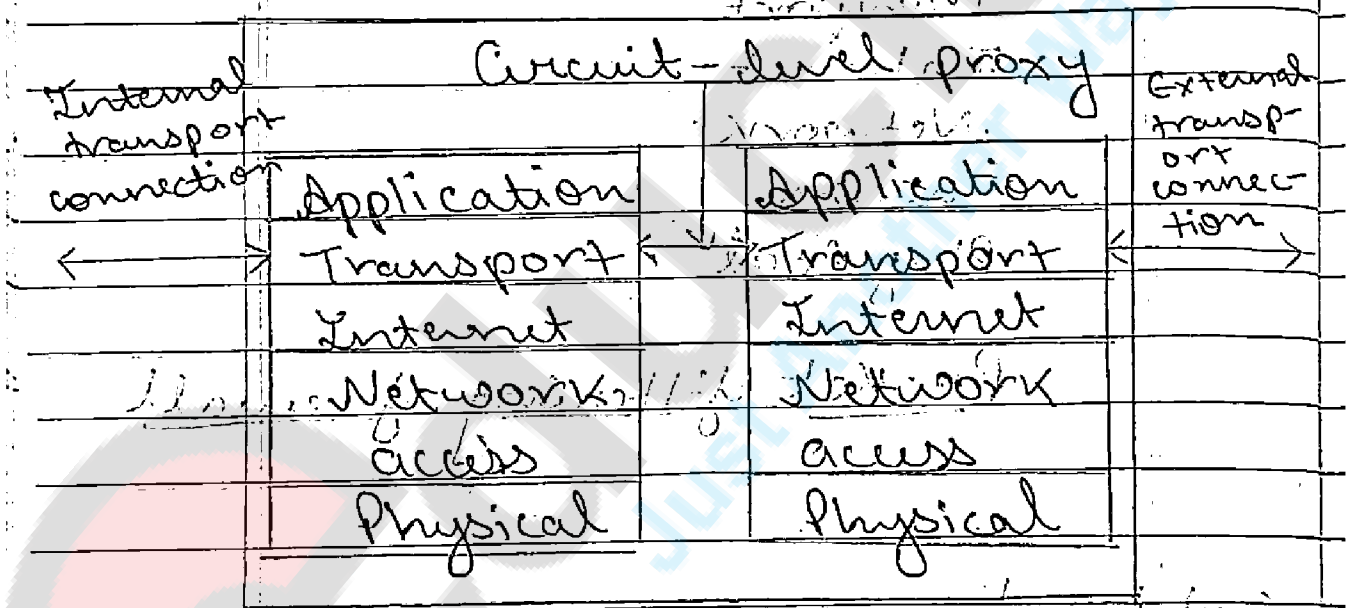 Circuit-level proxy
Internal
transport
connection
External
transp-
ort
connec-
tion
Application
Transport
Internet
Network
access
Physical
Application
Transport
Internet
Network
access
Physical
Just Another Way